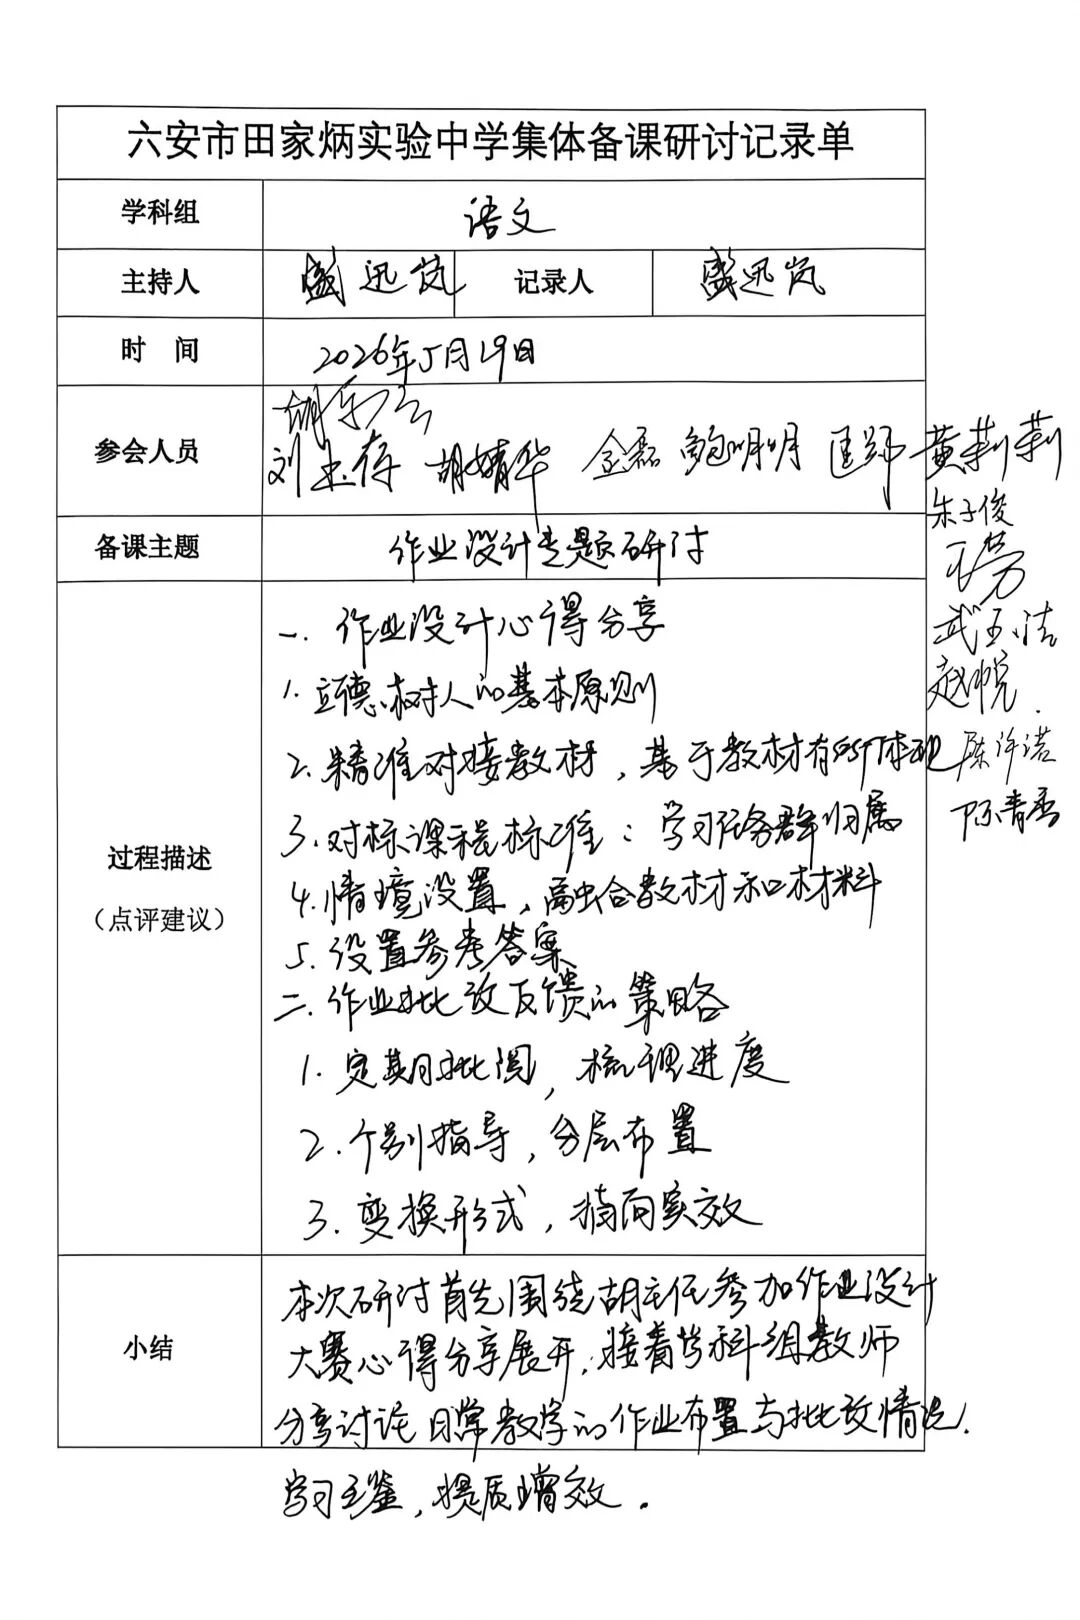 六安市田家炳实验中学集体备课研讨记录单
学科组 语文
主持人 盛迅岚 记录人 盛迅岚
时 间 2026年5月19日
参会人员
胡婧华 金磊 鲍明月 匡野 黄莉莉
朱子俊
武玉洁
赵悦
陈许诺
陈青
备课主题 作业设计专题研讨
过程描述
（点评建议）
一. 作业设计心得分享
1. 立德树人的基本原则
2. 精准对接教材，基于教材有所体现
3. 对标课程标准：学习任务群归属
4. 情境设置，融合教材和材料
5. 设置参考答案
二. 作业批改反馈的策略
1. 定期批阅，梳理进度
2. 个别指导，分层布置
3. 变换形式，指向实效
小结
本次研讨首先围绕胡主任参加作业设计
大赛心得分享展开，接着学科组教师
分享讨论日常教学的作业布置与批改情况.
学习互鉴，提质增效.